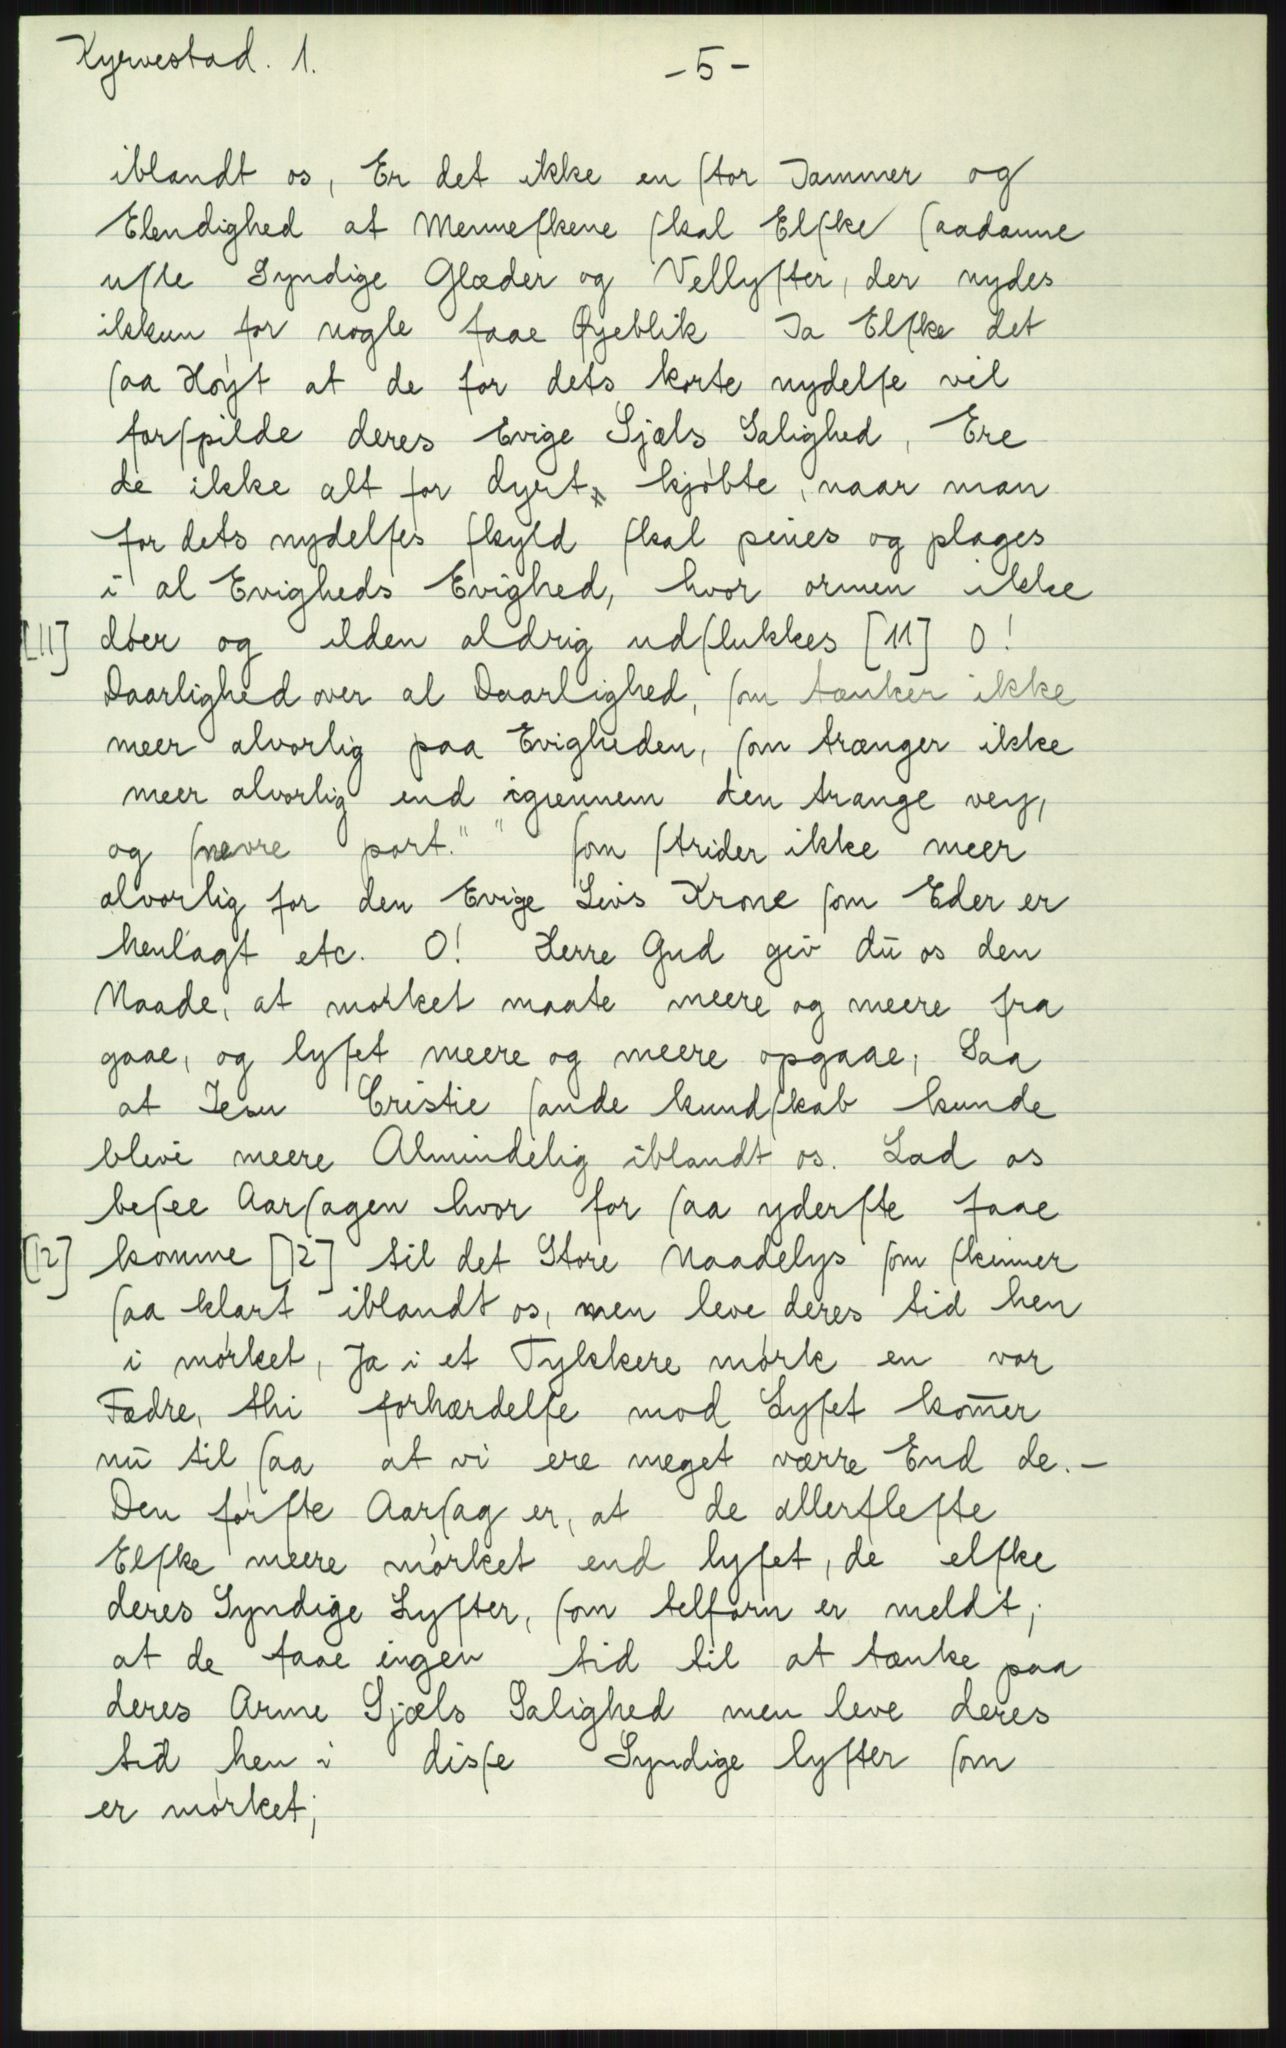 Kyrvestad. 1.
-5-
iblandt os, Er det ikke en ſtor Jammer og
Elendighed at Menneſkene ſkal Elſke ſaadanne
uſle Syndige Glæder og Vellyſter, der nydes
ikkun for nogle faae Øyeblik Ja Elſke det
ſaa Høyt at de for dets korte nydelſe vil
forſpilde deres Evige Sjæls Salighed, Ere
de ikke alt for dyrt kjøbte, naar man
for dets nydelſes ſkyld ſkal pines og plages
i al Evigheds Evighed, hvor ormen ikke
[11] døer og ilden aldrig udſlukkes [11] O!
Daarlighed over al Daarlighed, ſom tænker ikke
meer alvorlig paa Evigheden, ſom trænger ikke
meer alvorlig end igiennem den trange vey,
og ſnevre port." " ſom ſtrider ikke meer
alvorlig for den Evige Livs Krone ſom Eder er
henlagt etc. O! Herre Gud giv dū os den
Naade, at mørket maate meere og meere fra
gaae, og lyſet meere og meere opgaae, Saa
at Jesu Cristie ſande kundſkab kunde
blive meere Almindelig iblandt os. Lad os
beſee Aarſagen hvor for ſaa yderſte faae
[12] komme [12] til det Store Naadelys ſom ſkinner
ſaa klart iblandt os, men leve deres tid hen
i mørket, Ja i et Tykkere mørk en vor
Fædre, thi forhærdelſe mod Lyſet kom̄er
nū til ſaa at vi ere meget værre End de. —
Den førſte Aarſag er, at de allerfleſte
Elſke meere mørket end lyſet, de elſke
deres Syndige Lyſter, ſom telforn er meldt;
at de faae ingen tid til at tænke paa
deres Arme Sjæls Salighed men leve deres
tid hen i disſe Syndige lyſter ſom
er mørket;